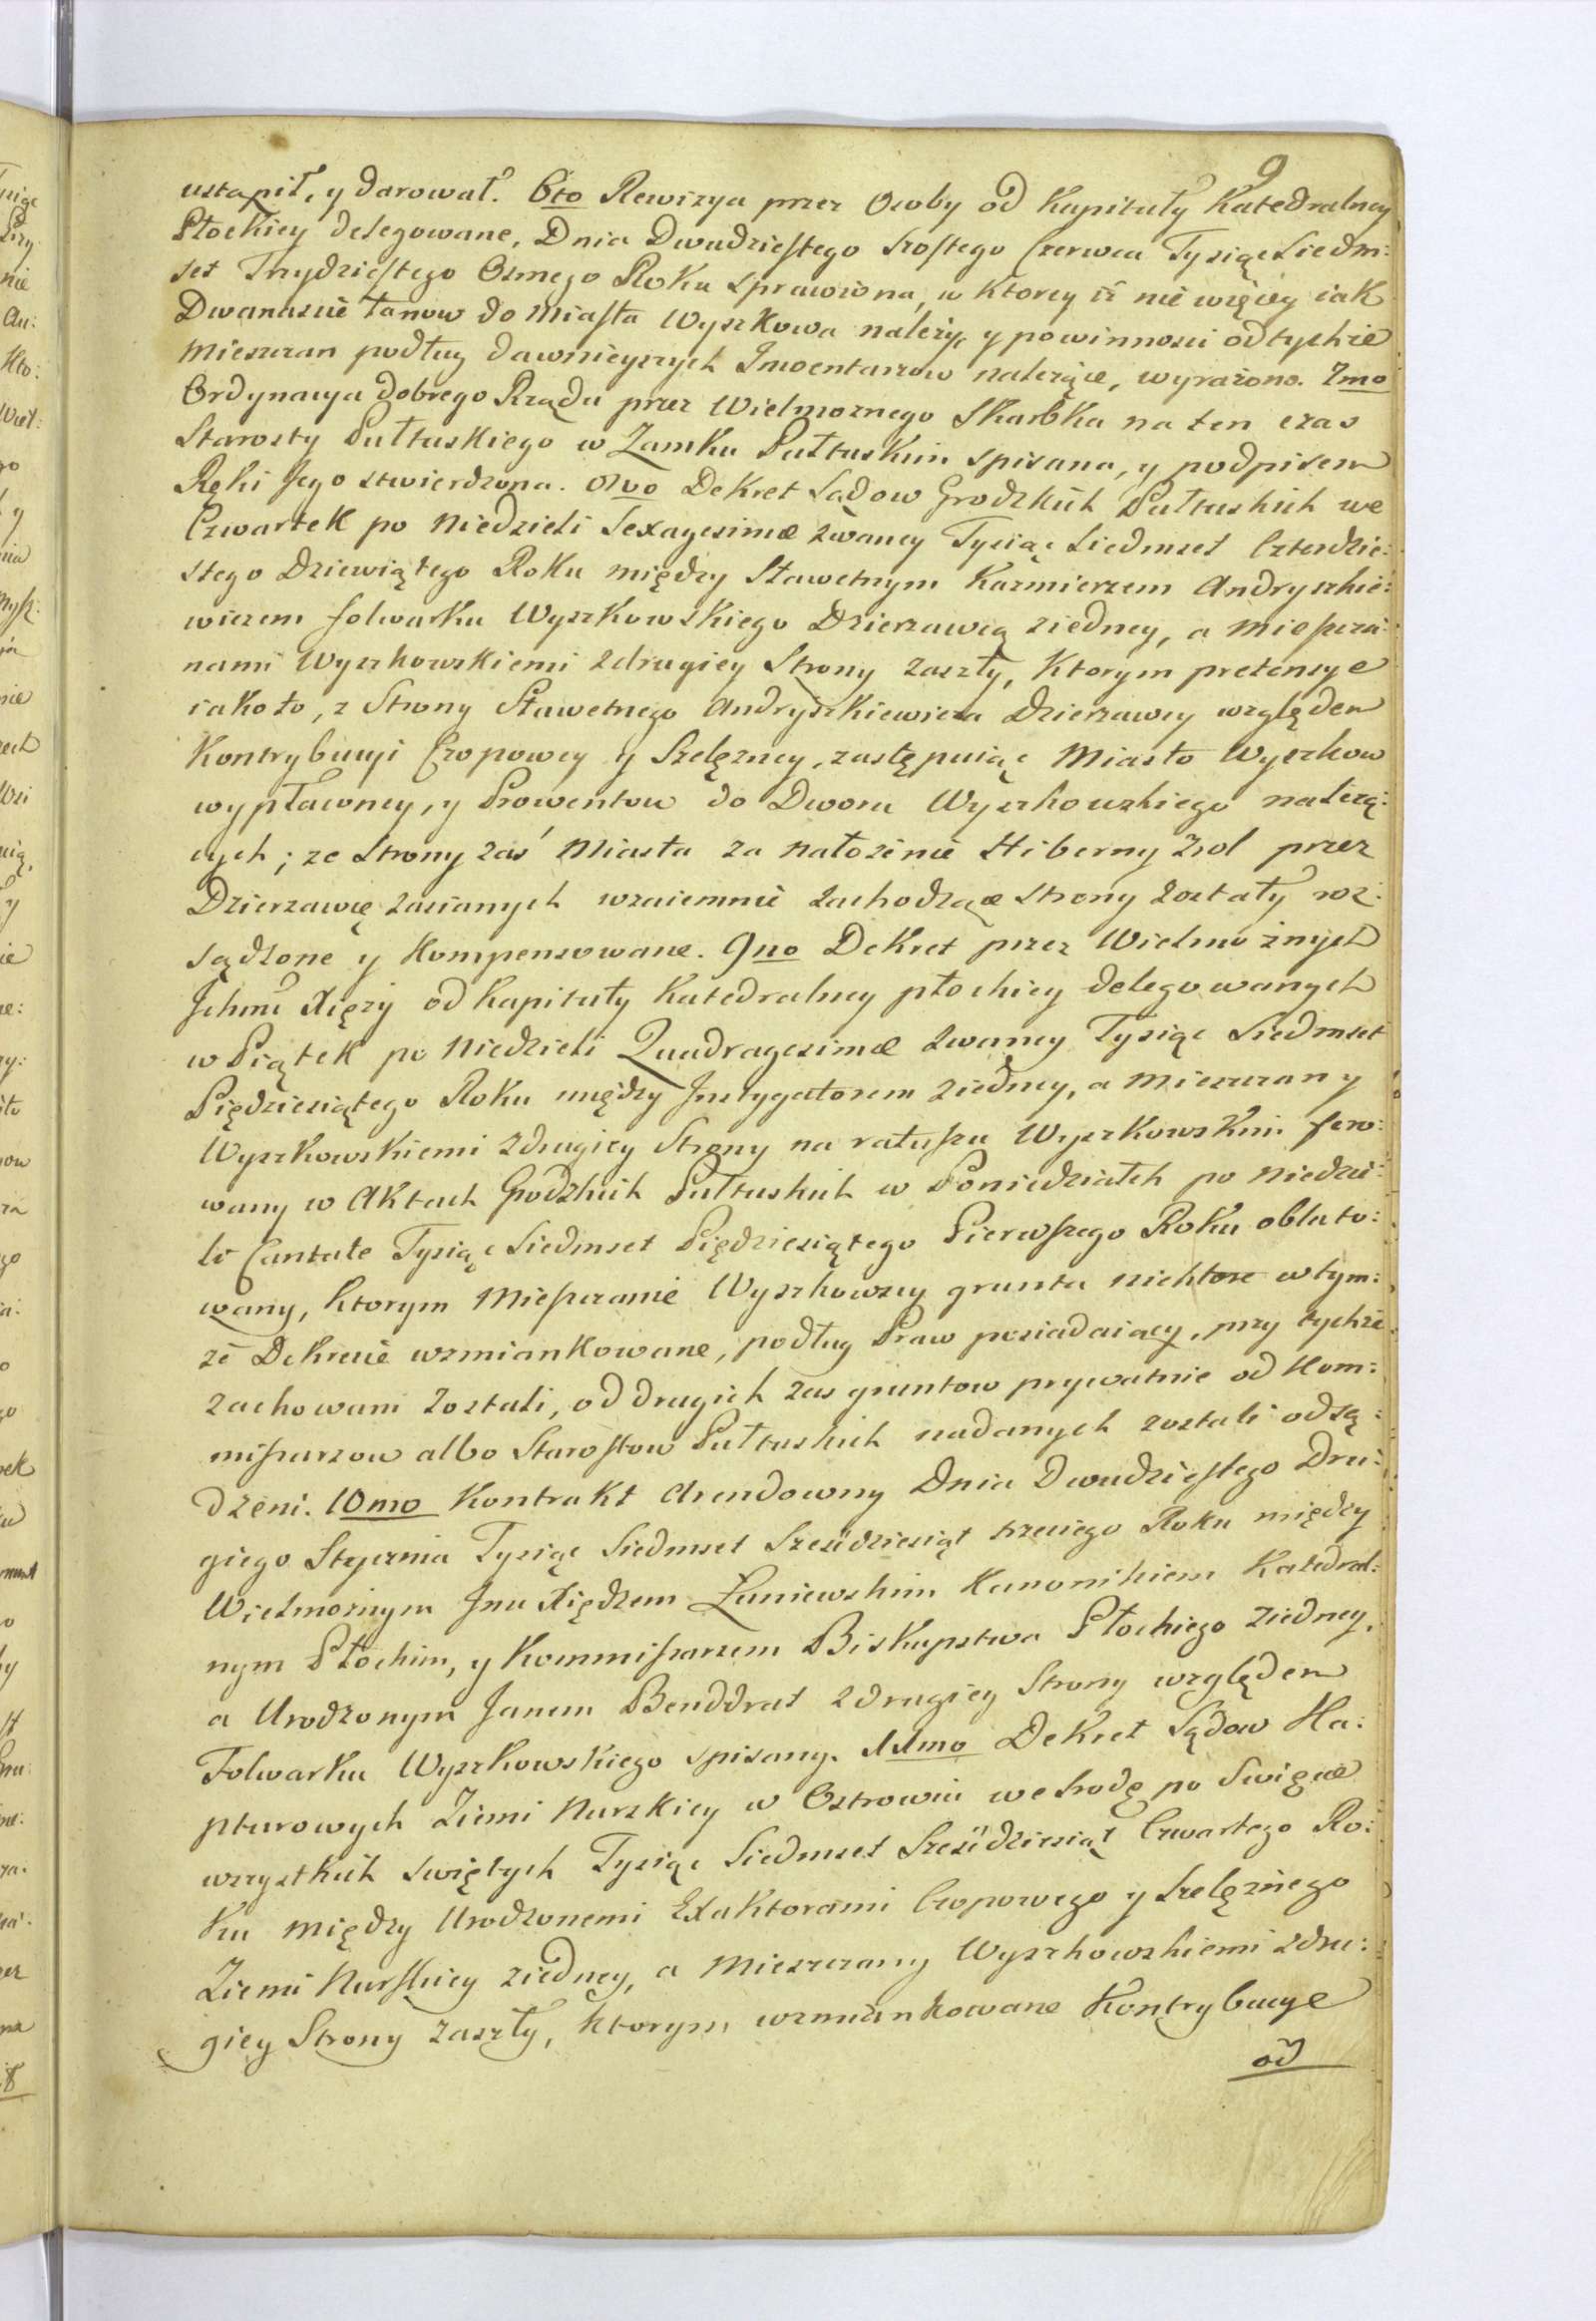 9
ustąpił, y darował. 6to Rewizya przez Osoby od Kapituły Katedralney
Płockiey delegowane, Dnia Dwudziestego Szostego Czerwca Tysiąc Siedm:
set Trzydziestego Osmego Roku sprawiona, w Ktorey iż nie więcey iak
Dwanascie Łanow do Miasta Wyszkowa należy, y powinnosci od tychże
Mieszczan podług dawnieyszych Inwentarzow należące, wyrażono. 7mo
Ordynacya dobrego Rządu przez Wielmoznego Skarbka na ten czas
Starosty Pułtuskiego w Zamku Pułtuskim spisana, y podpisem
Ręki Jego stwierdzona. 8vo Dekret Sądow Grodzkich Pułtuskich we
Czwartek po Niedzieli Sexagesimæ zwaney Tysiąc Siedmset Czterdzie:
stego Dziewiątego Roku między Sławetnym Kazmierzem Andryszkie:
wiczem folwarku Wyszkowskiego Dzierzawcą ziedney, a Mieszcza:
nami Wyszkowskiemi zdrugiey Strony zaszły, Ktorym pretensye
iako to, z Strony Sławetnego Andryszkiewicza Dzierzawcy względem
Kontrybucyi Czopowey y Szelężney, zastępuiąc Miasto Wyszkow
wypłaconey, y Prowentow do Dworu Wyszkowskiego należą:
cych; ze Strony zaś Miasta za nałożenie Hiberny Zrol przez
Dzierzawcę zasianych wzaiemnie zachodzące Strony zostały roz:
sądzone y Kompensowane. 9no Dekret przez Wielmożnych
Jchmć Xięży od Kapituły Katedralney płockiey delegowanych
w Piątek po Niedzieli Quadragesimæ zwaney Tysiąc Siedmset
Pięćdziesiątego Roku między Instygatorem ziedney, a Mieszczany
Wyszkowskiemi zdrugiey Strony na ratuszu Wyszkowskim fero:
wany w Aktach Grodzkich Pułtuskich w Poniedziałek po Niedzie:
li Cantate Tysiąc Siedmset Pięćdziesiątego Pierwszego Roku oblato:
wany, Ktorym Mieszczanie Wyszkowscy grunta niektore wtym:
że Dekrecie wzmiankowane, podług Praw posiadaiący, przy tychże
zachowani zostali, od drugich zas gruntow prywatnie od Kom:
missarzow albo Starostow Pułtuskich nadanych zostali odsą:
dzeni. 10mo Kontrakt Arendowny Dnia Dwudziestego Dru:
giego Stycznia Tysiąc Siedmset Sześćdziesiąt trzeciego Roku między
Wielmożnym Jmć Xiędzem Łuniewskim Kanonikiem Katedral:
nym Płockim, y Kommissarzem Biskupstwa Płockiego ziedney,
a Urodzonym Janem Benddrat zdrugiey Strony względem
Folwarku Wyszkowskiego spisany. 11mo Dekret Sądow Ka:
pturowych Ziemi Nurskiey w Ostrowiu we Srodę po Święcie
wszystkich świętych Tysiąc Siedmset Sześćdziesiąt Czwartego Ro:
ku między Urodzonemi Exaktorami Czopowego y Szelężnego
Ziemi Nurskiey ziedney, a Mieszczany Wyszkowskiemi zdru:
giey Strony zaszły, Ktorym wzmiankowane Kontrybucye
od